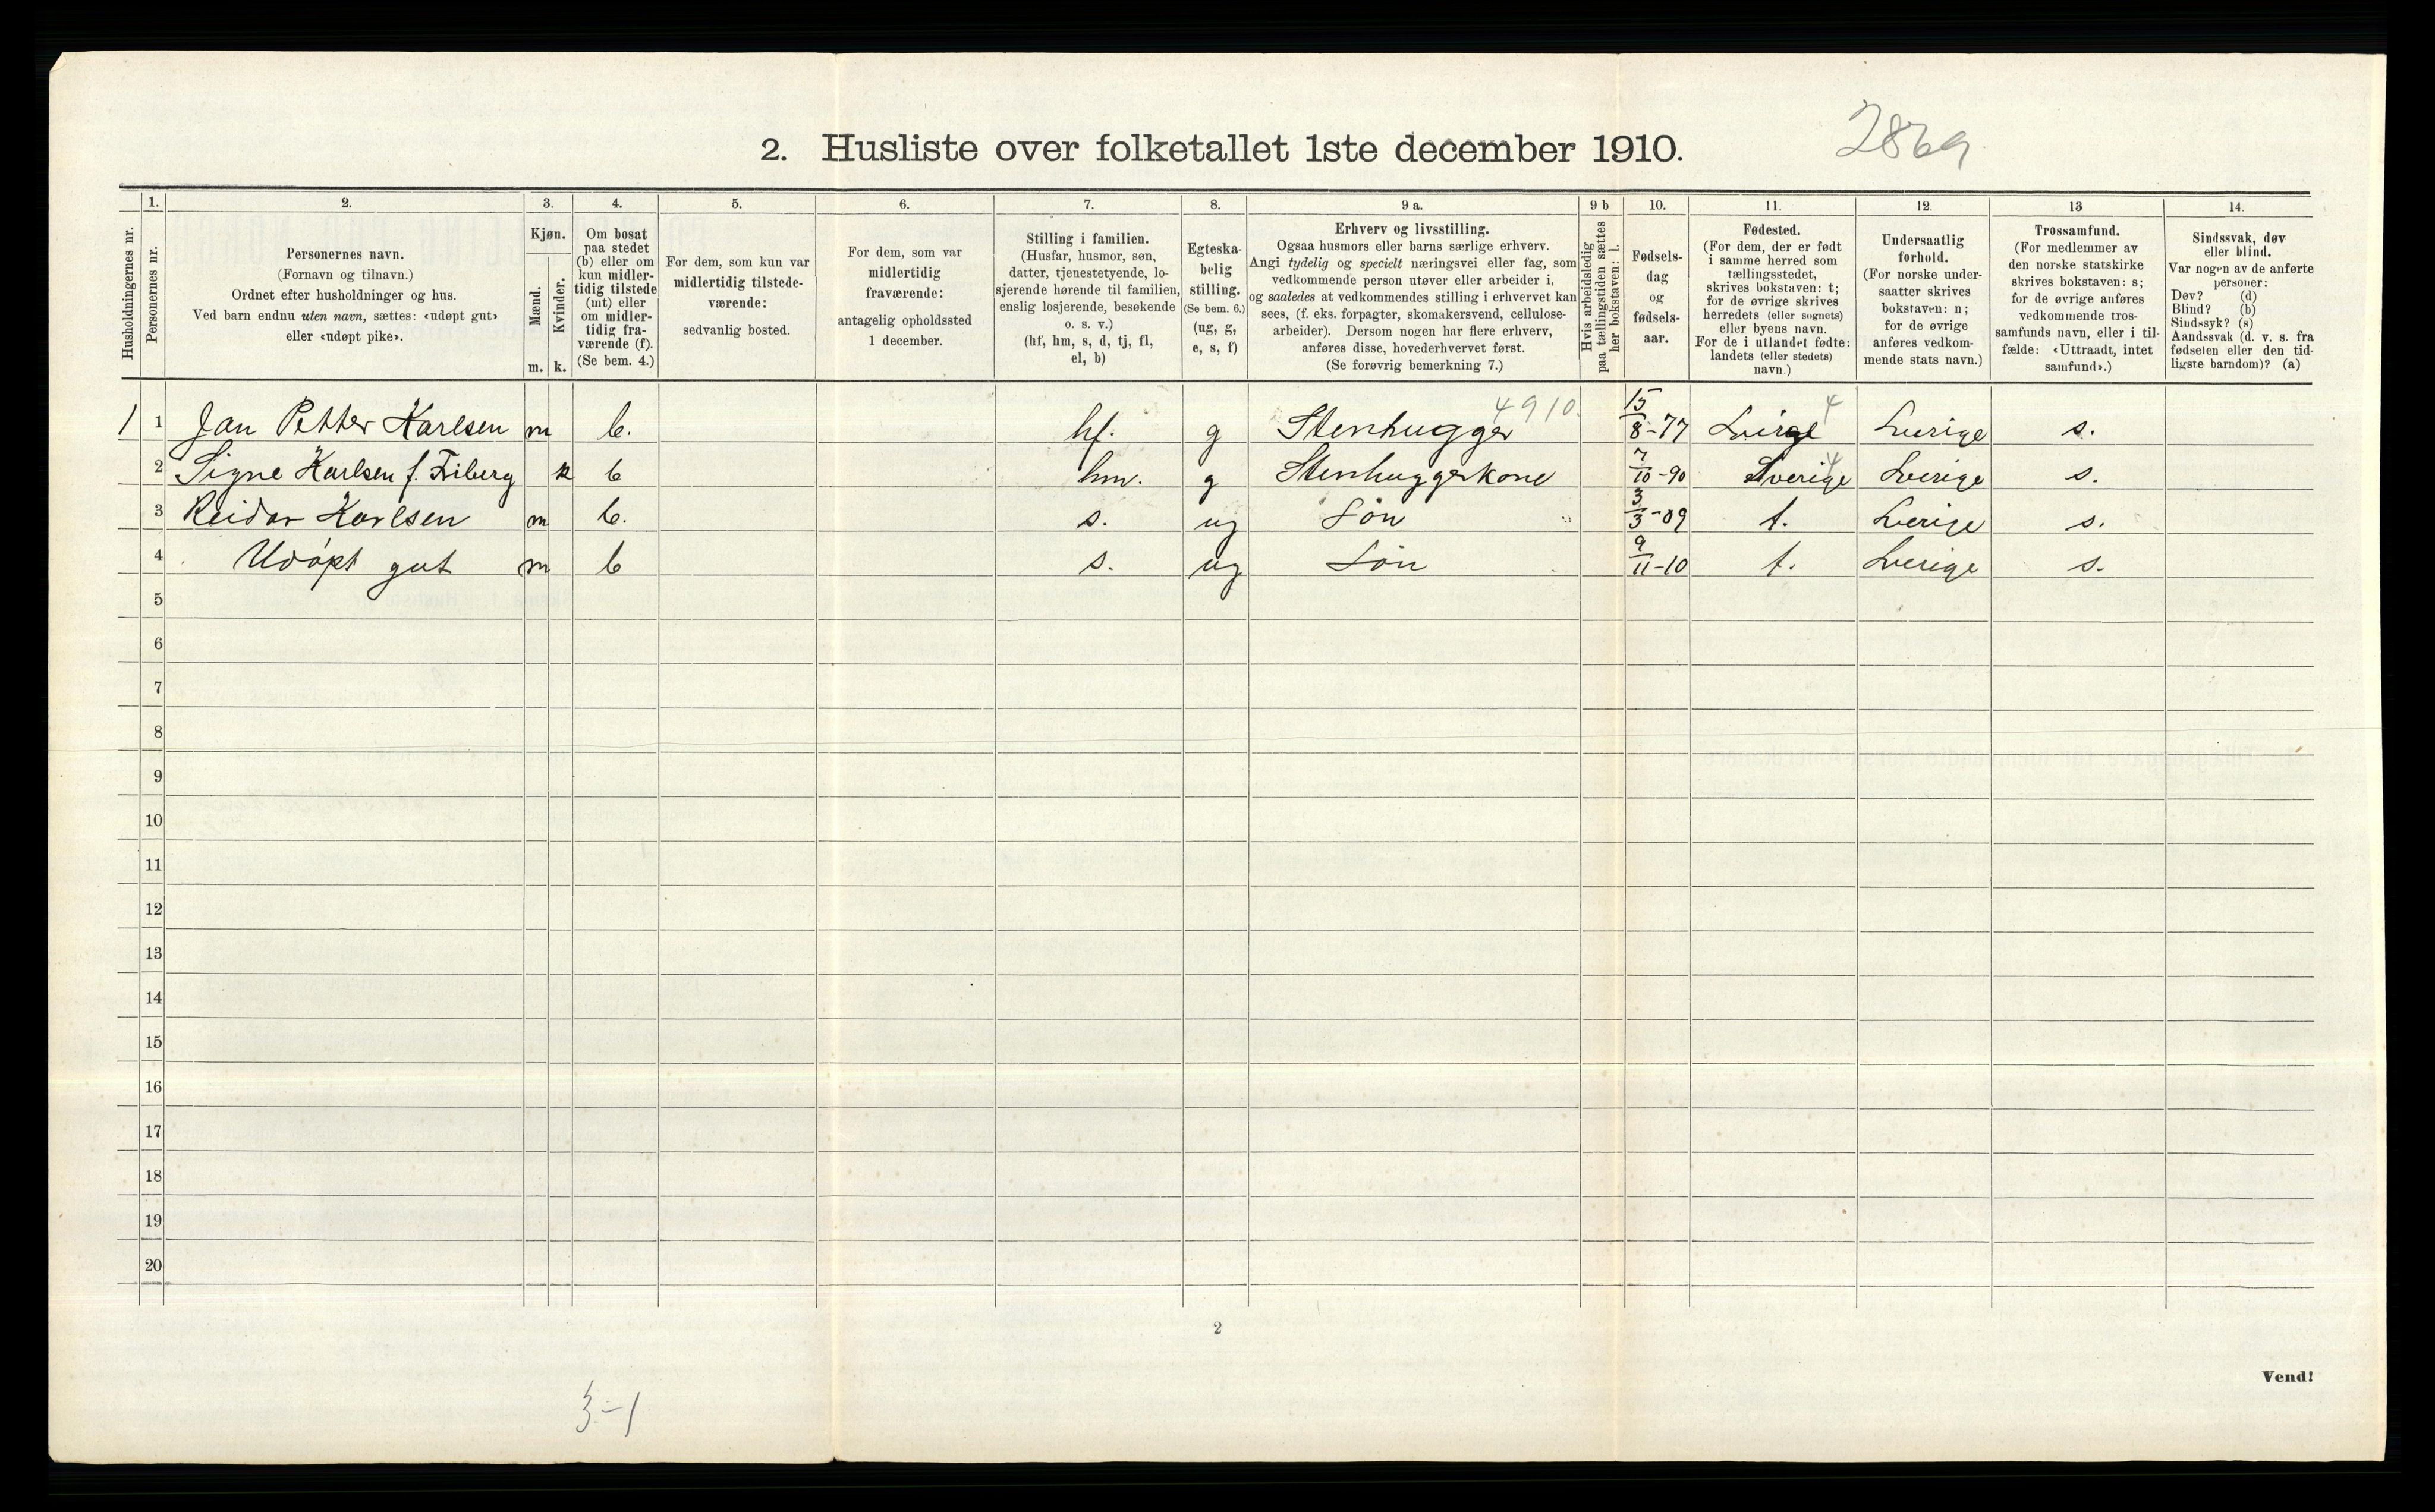 2. Husliste over folketallet 1ste december 1910.
1.
2.
3.
4.
5.
6.
7.
8.
9 a.
9 b
10.
11.
12.
13
14.
Husholdningernes nr.
Personernes nr.
Personernes navn.
(Fornavn og tilnavn.)
Ordnet efter husholdninger og hus.
Ved barn endnu uten navn, sættes: «udøpt gut»
eller «udøpt pike».
Kjøn.
Mænd.
Kvinder.
m. k.
Om bosat
paa stedet
(b) eller om
kun midler-
tidig tilstede
(mt) eller
om midler-
tidig fra-
værende (f).
(Se bem. 4.)
For dem, som kun var
midlertidig tilstede-
værende:
sedvanlig bosted.
For dem, som var
midlertidig
fraværende:
antagelig opholdssted
1 december.
Stilling i familien.
(Husfar, husmor, søn,
datter, tjenestetyende, lo-
sjerende hørende til familien,
enslig losjerende, besøkende
o. s. v.)
(hf, hm, s, d, tj, fl,
el, b)
Egteska-
belig
stilling.
(Se bem. 6.)
(ug, g,
e, s, f)
Erhverv og livsstilling.
Ogsaa husmors eller barns særlige erhverv.
Angi tydelig og specielt næringsvei eller fag, som
vedkommende person utøver eller arbeider i,
og saaledes at vedkommendes stilling i erhvervet kan
sees, (f. eks. forpagter, skomakersvend, cellulose-
arbeider). Dersom nogen har flere erhverv,
anføres disse, hovederhvervet først.
(Se forøvrig bemerkning 7.)
Hvis arbeidsledig
paa tællingstiden sættes
her bokstaven: l.
Fødsels-
dag
og
fødsels-
aar.
Fødested.
(For dem, der er født
i samme herred som
tællingsstedet,
skrives bokstaven: t;
for de øvrige skrives
herredets (eller sognets)
eller byens navn.
For de i utlandet fødte:
landets (eller stedets)
navn.)
Undersaatlig
forhold.
(For norske under-
saatter skrives
bokstaven: n;
for de øvrige
anføres vedkom-
mende stats navn.)
Trossamfund.
(For medlemmer av
den norske statskirke
skrives bokstaven: s;
for de øvrige anføres
vedkommende tros-
samfunds navn, eller i til-
fælde: «Uttraadt, intet
samfund».)
Sindssvak, døv
eller blind.
Var nogen av de anførte
personer:
Døv? (d)
Blind? (b)
Sindssyk? (s)
Aandssvak (d. v. s. fra
fødselen eller den tid-
ligste barndom)? (a)
4910.
1 1 Jan Petter Karlsen m b. hf. g Stenhugger 15/8-77 4 Sverige s.
2 Signe Karlsen f. Friberg k b hm. g Stenhuggerkone 7/10-90 Sverige 4 Sverige s.
3 Reidar Karlsen m b. s. ug Søn 3/3-09 t. Sverige s.
4 Udøpt gut m b s. ug Søn 9/11-10 t. Sverige s.
5
6
7
8
9
10
11
12
13
14
15
16
17
18
19
20
2
Vend!
3-1